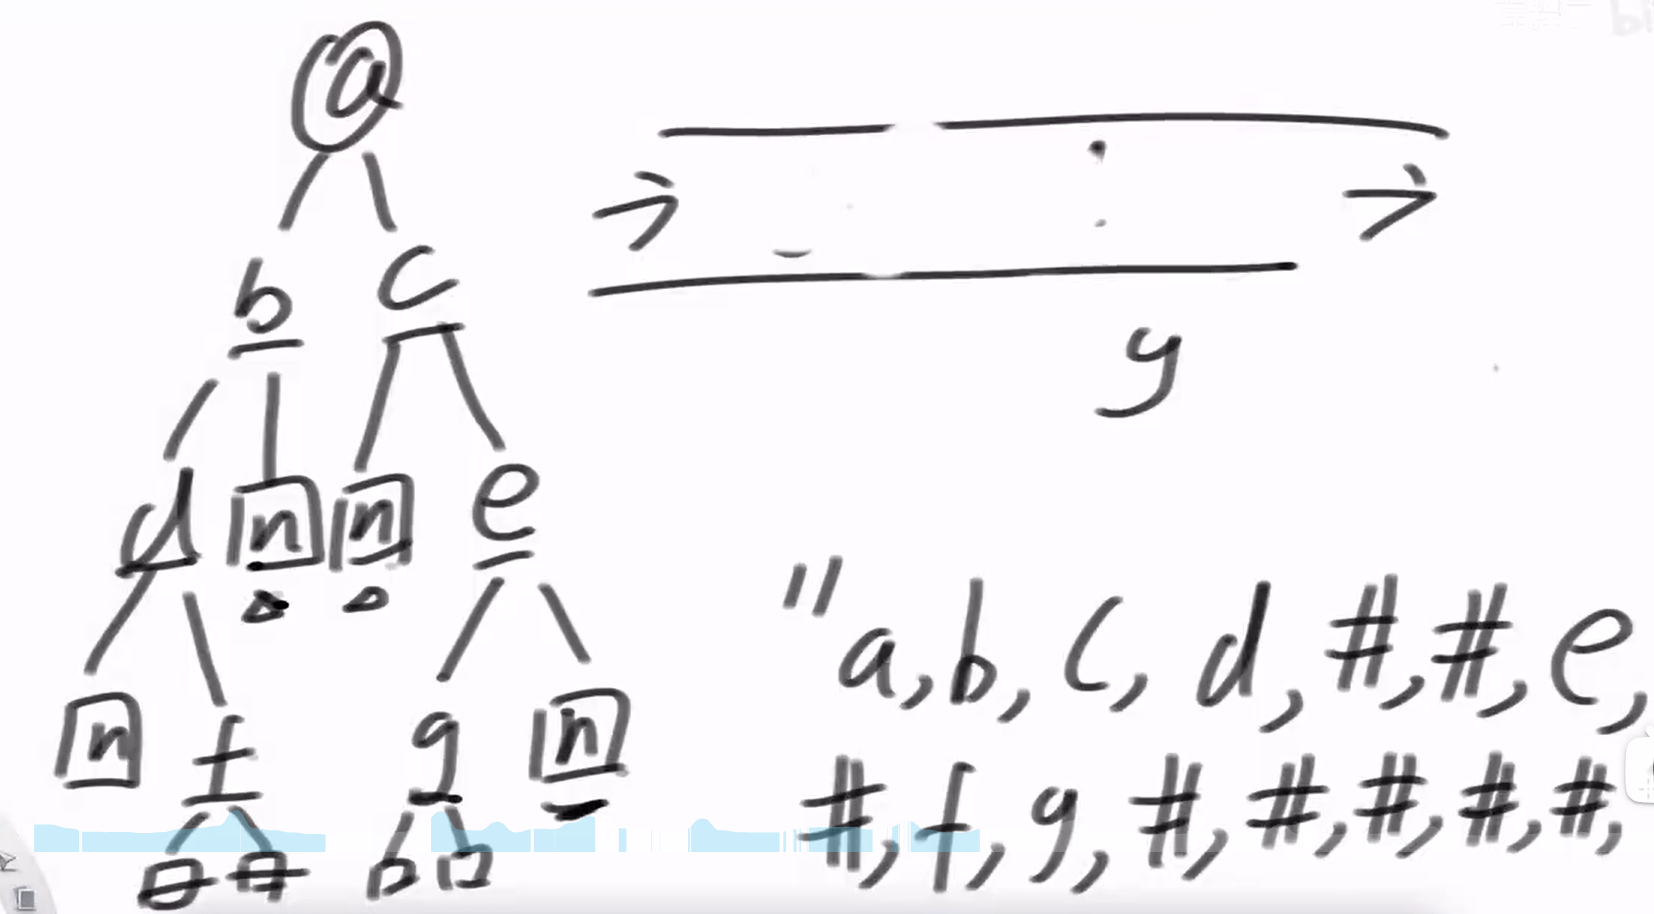 a
b c
d n n e
y
n f g n
"a,b,c,d,#,#,e,
#,f,g,#,#,#,#,#,